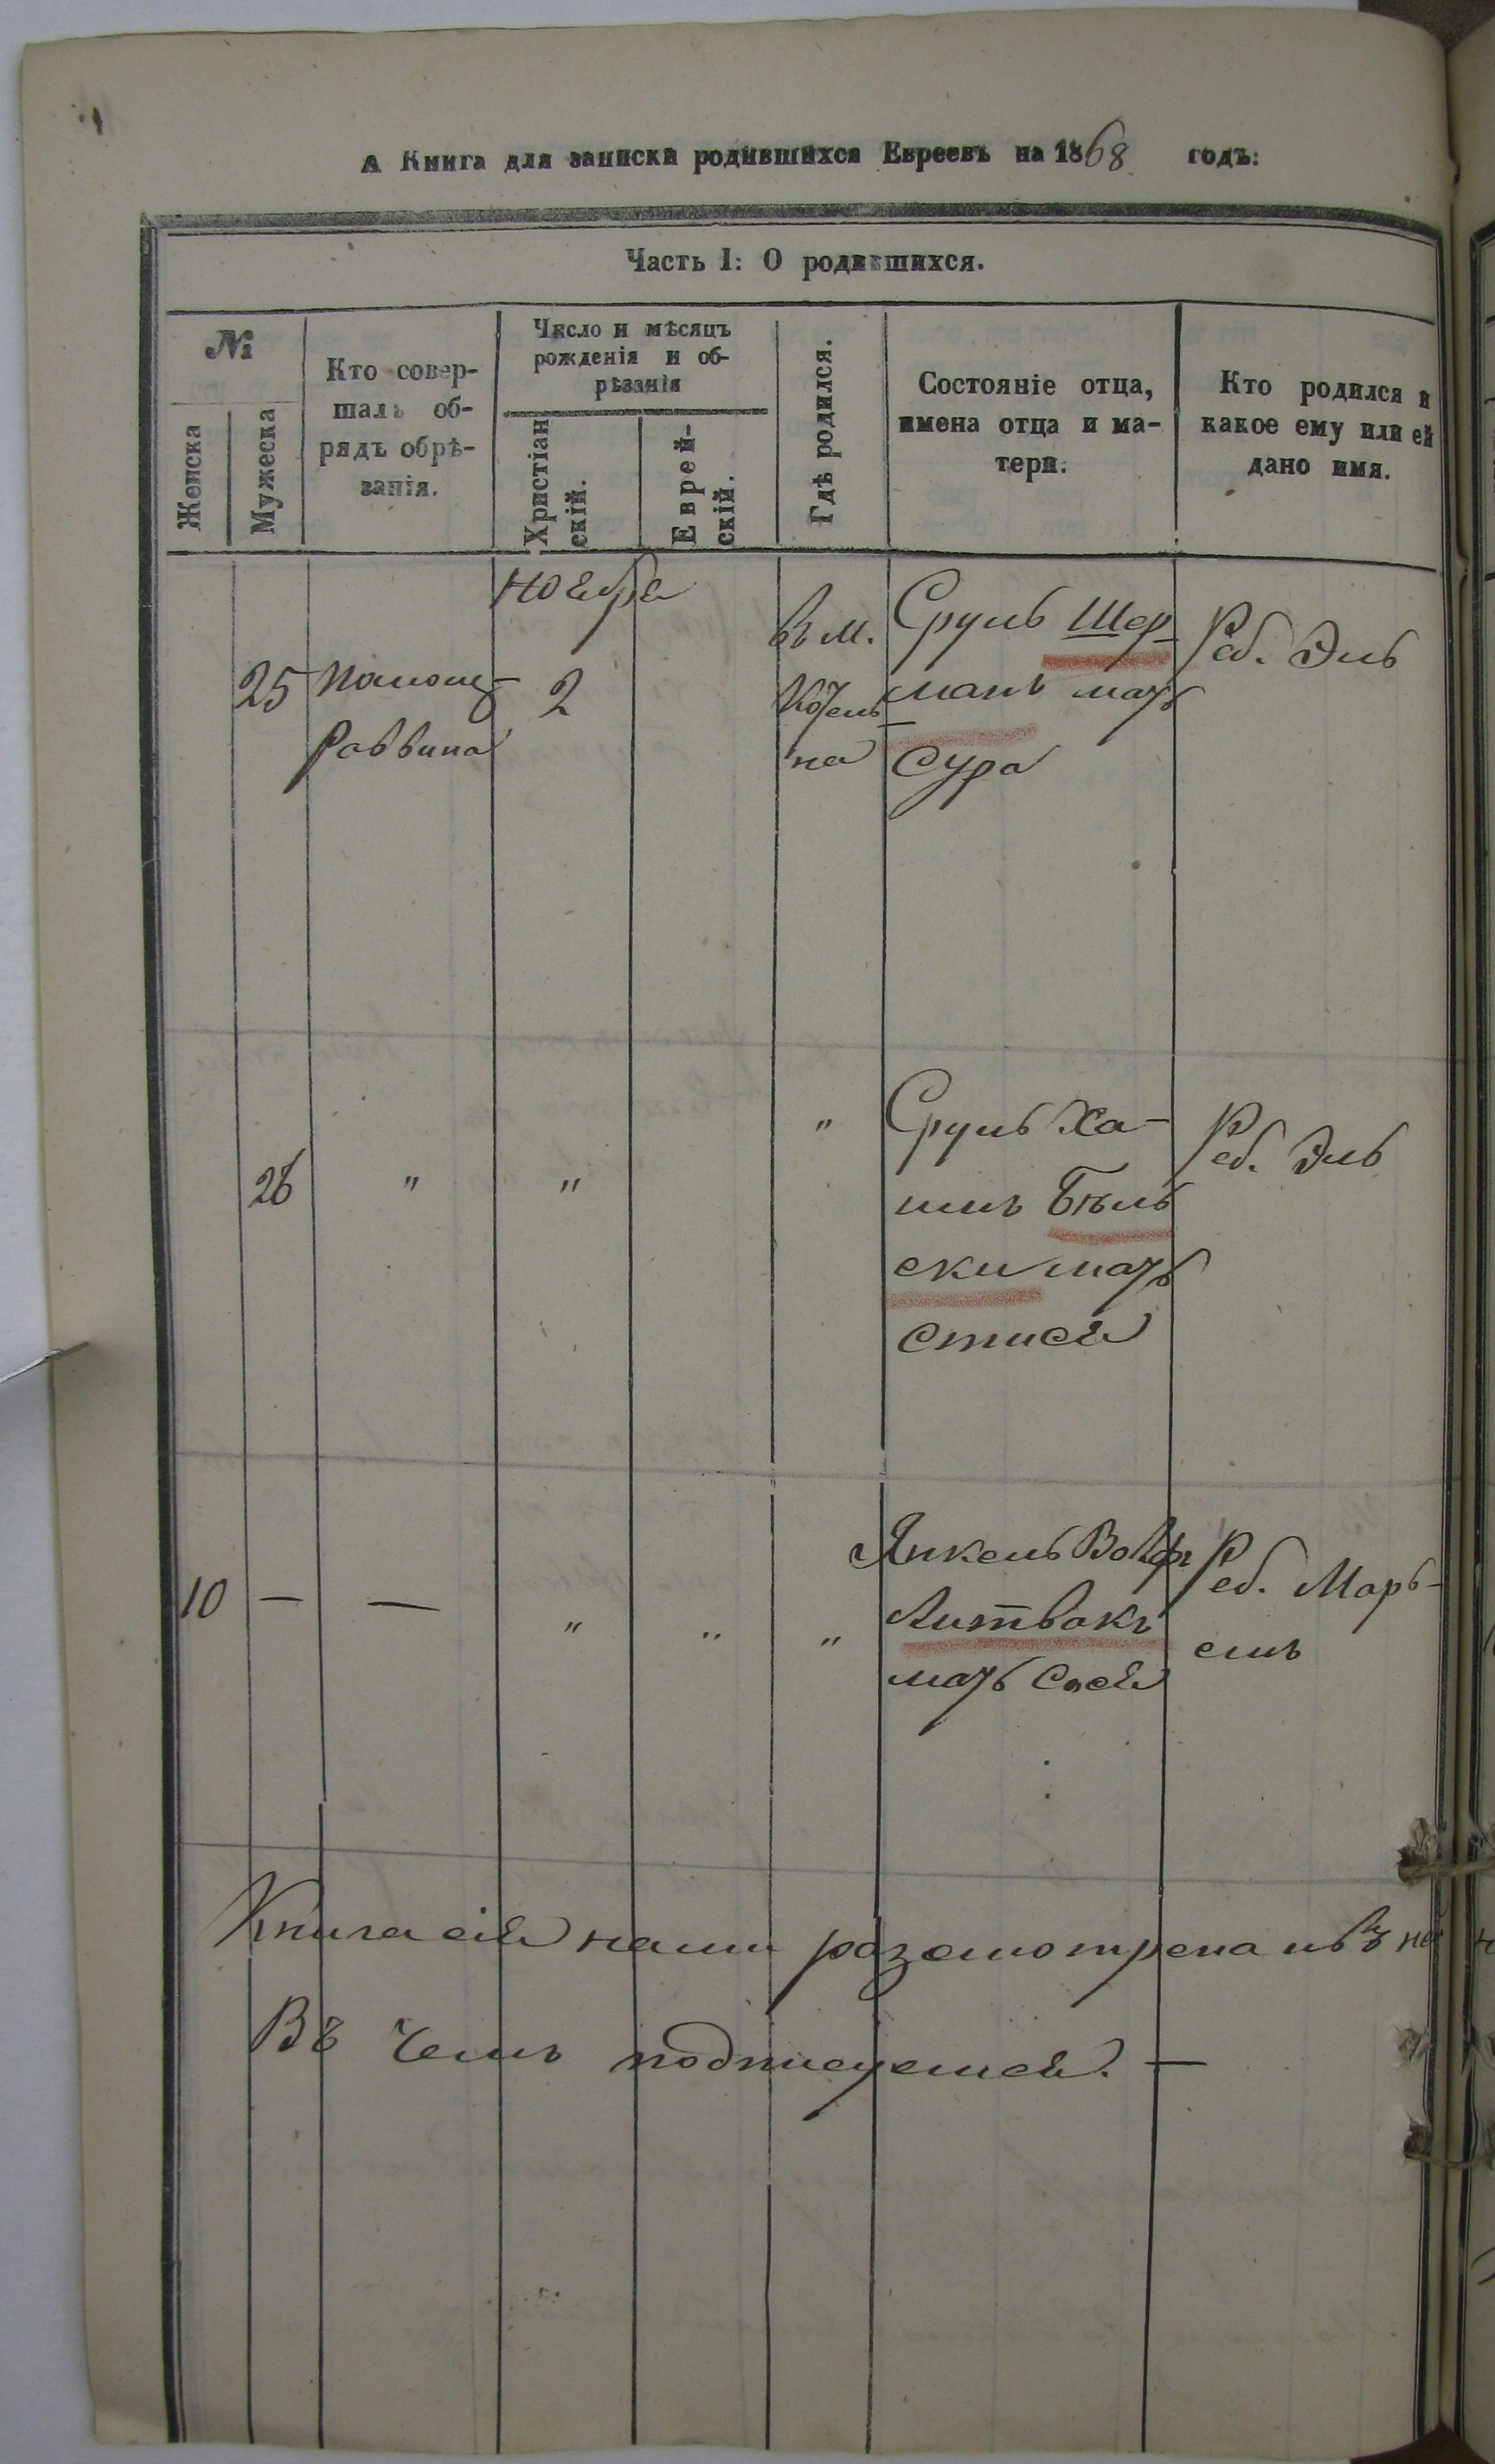 А Книга для записки родившихся Евреевъ на 1868 годъ:
Часть I: О родившихся.
№
Женска
Мужеска
Кто совер-
шалъ об-
рядъ обрѣ-
занія.
Число и мѣсяцъ
рожденія и об-
рѣзанія
Христіан
скій.
Еврей-
скій.
Гдѣ родился.
Состояніе отца,
имена отца и ма-
тери.
Кто родился и
какое ему или ей
дано имя.
ноября
25
Помощ
Раввина
2
въ м.
Кочель
на
Сруль Шер
манъ мать
Сура
Реб. Эль
26
"
"
"
Сруль Ха-
имъ Бѣль
ски мать
Реб. Эль
10
—
—
"
"
"
Янкель Волфъ
Литвакъ
мать Сося
Реб. Марь-
емъ
Книга сія нами разсмотрена
Въ чемъ подписуемся. —